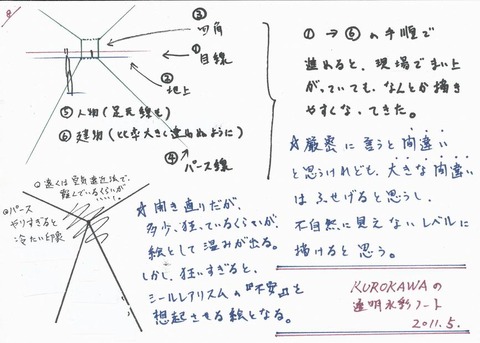 ③
四角
①
目線
②
地上
⑤ 人物(足元線も)
⑥ 建物(比率大きく違わぬように)
④
パース線
① → ⑥ の手順で
進めると、現場でまい上
がっていても、なんとか描き
やすくなってきた。
☆厳密に言うと間違い
と思うけれども、大きな間違い
はふせげると思うし、
不自然に見えないレベルに
描けると思う。
○遠くは空気遠近法で、
霞んでいるくらいが
いい…!
○パース
やりすぎると
冷たい印象
☆開き直りだが、
多少、狂っているくらいが
絵として温みが出る。
しかし、狂いすぎると、
シールレアリスムの『不安』を
想起させる絵となる。
KUROKAWAの
透明水彩ノート
2011.5.